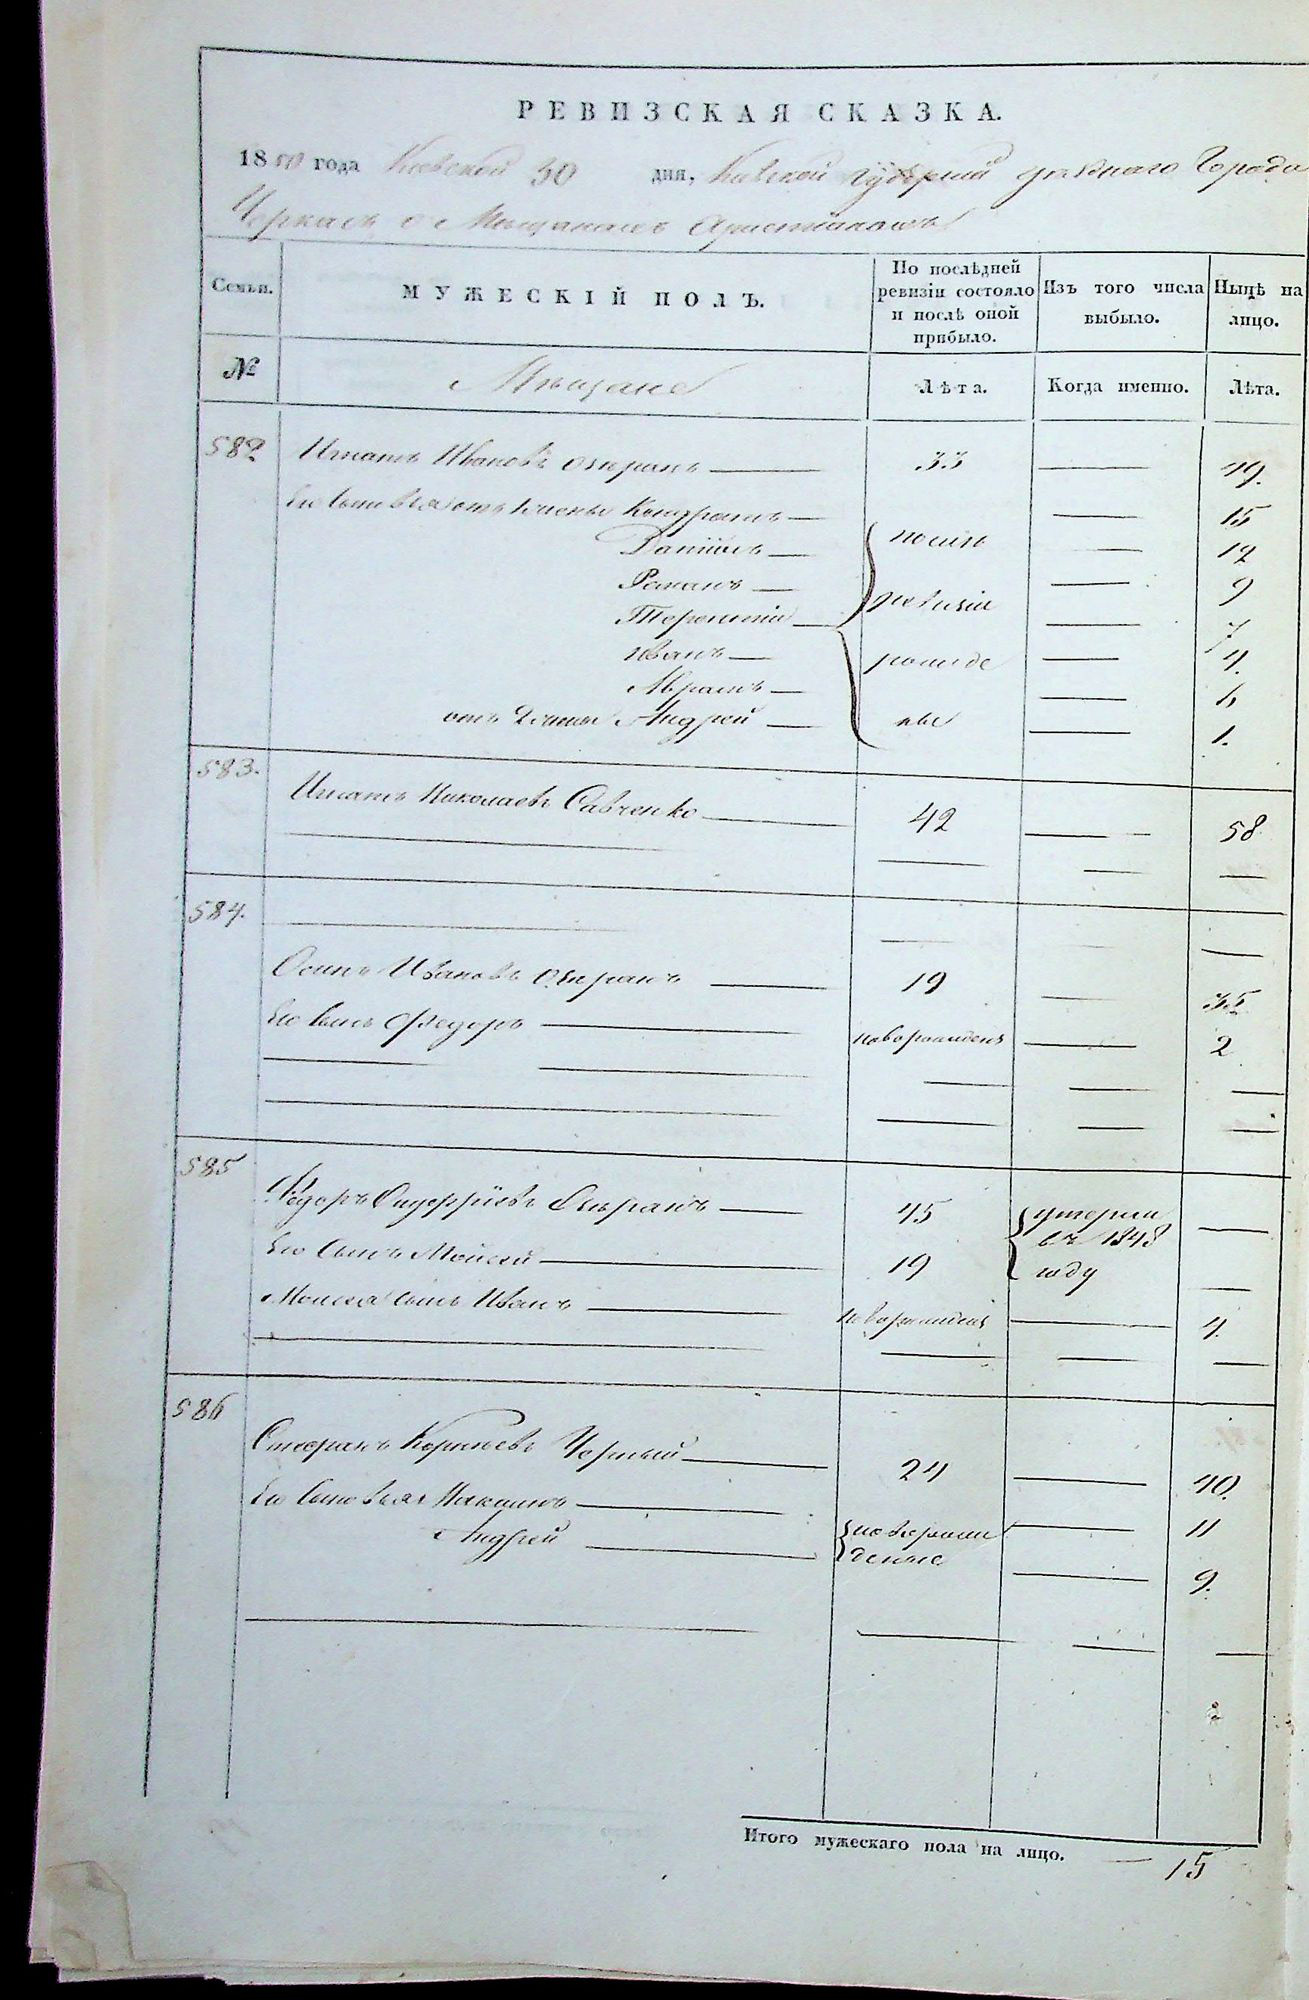 РЕВИЗСКАЯ СКАЗКА.
1850 года 30 дня, Киевской Губернии уѣзднаго Города
Черкасъ о Мѣщанахъ Христіянахъ
Семьи.
МУЖЕСКІЙ ПОЛЪ.
По послѣдней ревизіи состояло и послѣ оной прибыло.
Изъ того числа выбыло.
Нынѣ на лицо.
№
Мѣщане
Лѣта.
Когда именно.
Лѣта.
582. Игнатъ Ивановъ 33 — 49.
Его Сыновья отъ Кондратъ — 15
Даніилъ — послѣ — 12
Романъ — — 9
Терентій — ревизіи — 7
Иванъ — рожде — 4.
Абрамъ — — 6
отъ Андрей — ные — 1.
583. Игнатъ Николаевъ Савченко — 42 — 58
584.
Осипъ Ивановъ — 19 — 35
Его Сынъ Федоръ — новорожденъ — 2
585 Федоръ — 45 умерли —
въ 1848
Его Сынъ Мойсей — 19 году —
Мойсея сынъ Иванъ — новорожденъ — 4.
586
Стефанъ Корнѣевъ Черный — 24 — 40.
Его Сыновья Максимъ — новорож — 11
Андрей — денные — 9.
Итого мужескаго пола на лицо. — 15